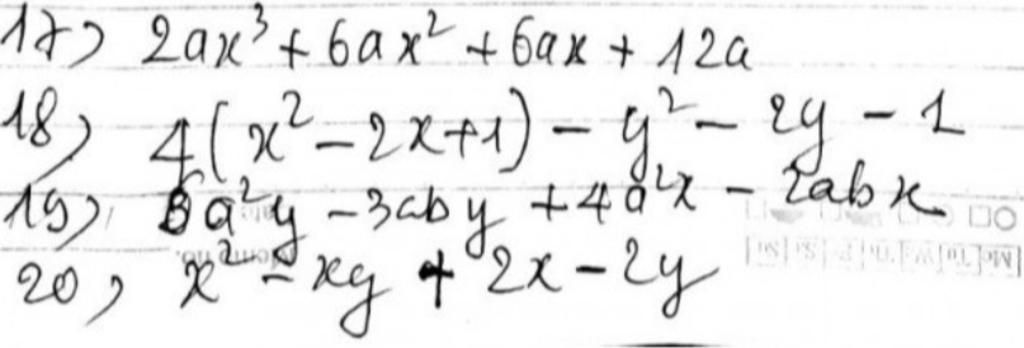 17) 2ax³ + 6ax² + 6ax + 12a
18) 4(x² - 2x+1) - y² - 2y - 1
19) 6a²y - 3aby + 4a²x - 2abx
20) x² - xy + 2x - 2y